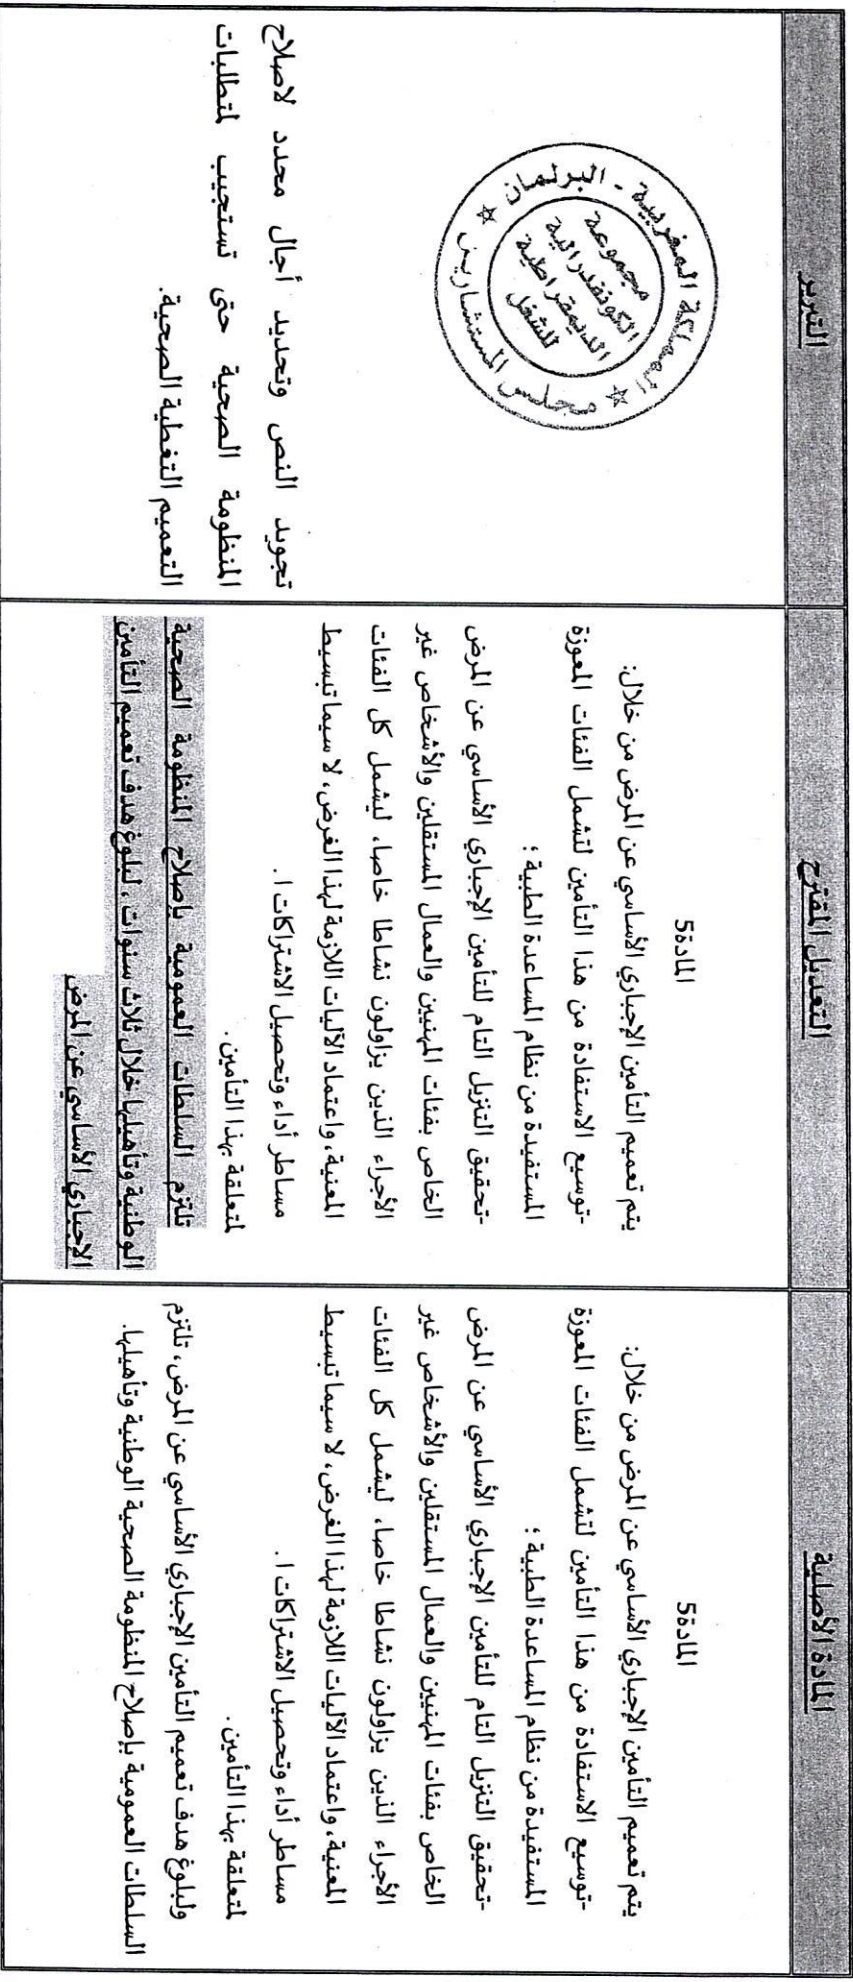 المادة الأصلية
المادة5
يتم تعميم التأمين الإجباري الأساسي عن المرض من خلال:
-توسيع الاستفادة من هذا التأمين لتشمل الفئات المعوزة
المستفيدة من نظام المساعدة الطبية ؛
-تحقيق التنزيل التام للتأمين الإجباري الأساسي عن المرض
الخاص بفئات المهنيين والعمال المستقلين والأشخاص غير
الأجراء الذين يزاولون نشاطا خاصا، ليشمل كل الفئات
المعنية، واعتماد الآليات اللازمة لهذا الغرض، لا سيما تبسيط
مساطر أداء وتحصيل الاشتراكات ا .
لمتعلقة بهذا التأمين .
ولبلوغ هدف تعميم التأمين الإجباري الأساسي عن المرض، تلتزم
السلطات العمومية بإصلاح المنظومة الصحية الوطنية وتأهيلها.
التعديل المقترح
المادة5
يتم تعميم التأمين الإجباري الأساسي عن المرض من خلال:
-توسيع الاستفادة من هذا التأمين لتشمل الفئات المعوزة
المستفيدة من نظام المساعدة الطبية ؛
-تحقيق التنزيل التام للتأمين الإجباري الأساسي عن المرض
الخاص بفئات المهنيين والعمال المستقلين والأشخاص غير
الأجراء الذين يزاولون نشاطا خاصا، ليشمل كل الفئات
المعنية، واعتماد الآليات اللازمة لهذا الغرض، لا سيما تبسيط
مساطر أداء وتحصيل الاشتراكات ا .
لمتعلقة بهذا التأمين .
تلتزم السلطات العمومية بإصلاح المنظومة الصحية
الوطنية وتأهيلها خلال ثلاث سنوات، لبلوغ هدف تعميم التأمين
الإجباري الأساسي عن المرض
التبرير
المملكة المغربية - البرلمان
مجلس المستشارين
مجموعة
الكونفدرالية
الديمقراطية
للشغل
تجويد النص وتحديد أجال محدد لاصلاح
المنظومة الصحية حتى تستجيب لمتطلبات
التعميم التغطية الصحية.